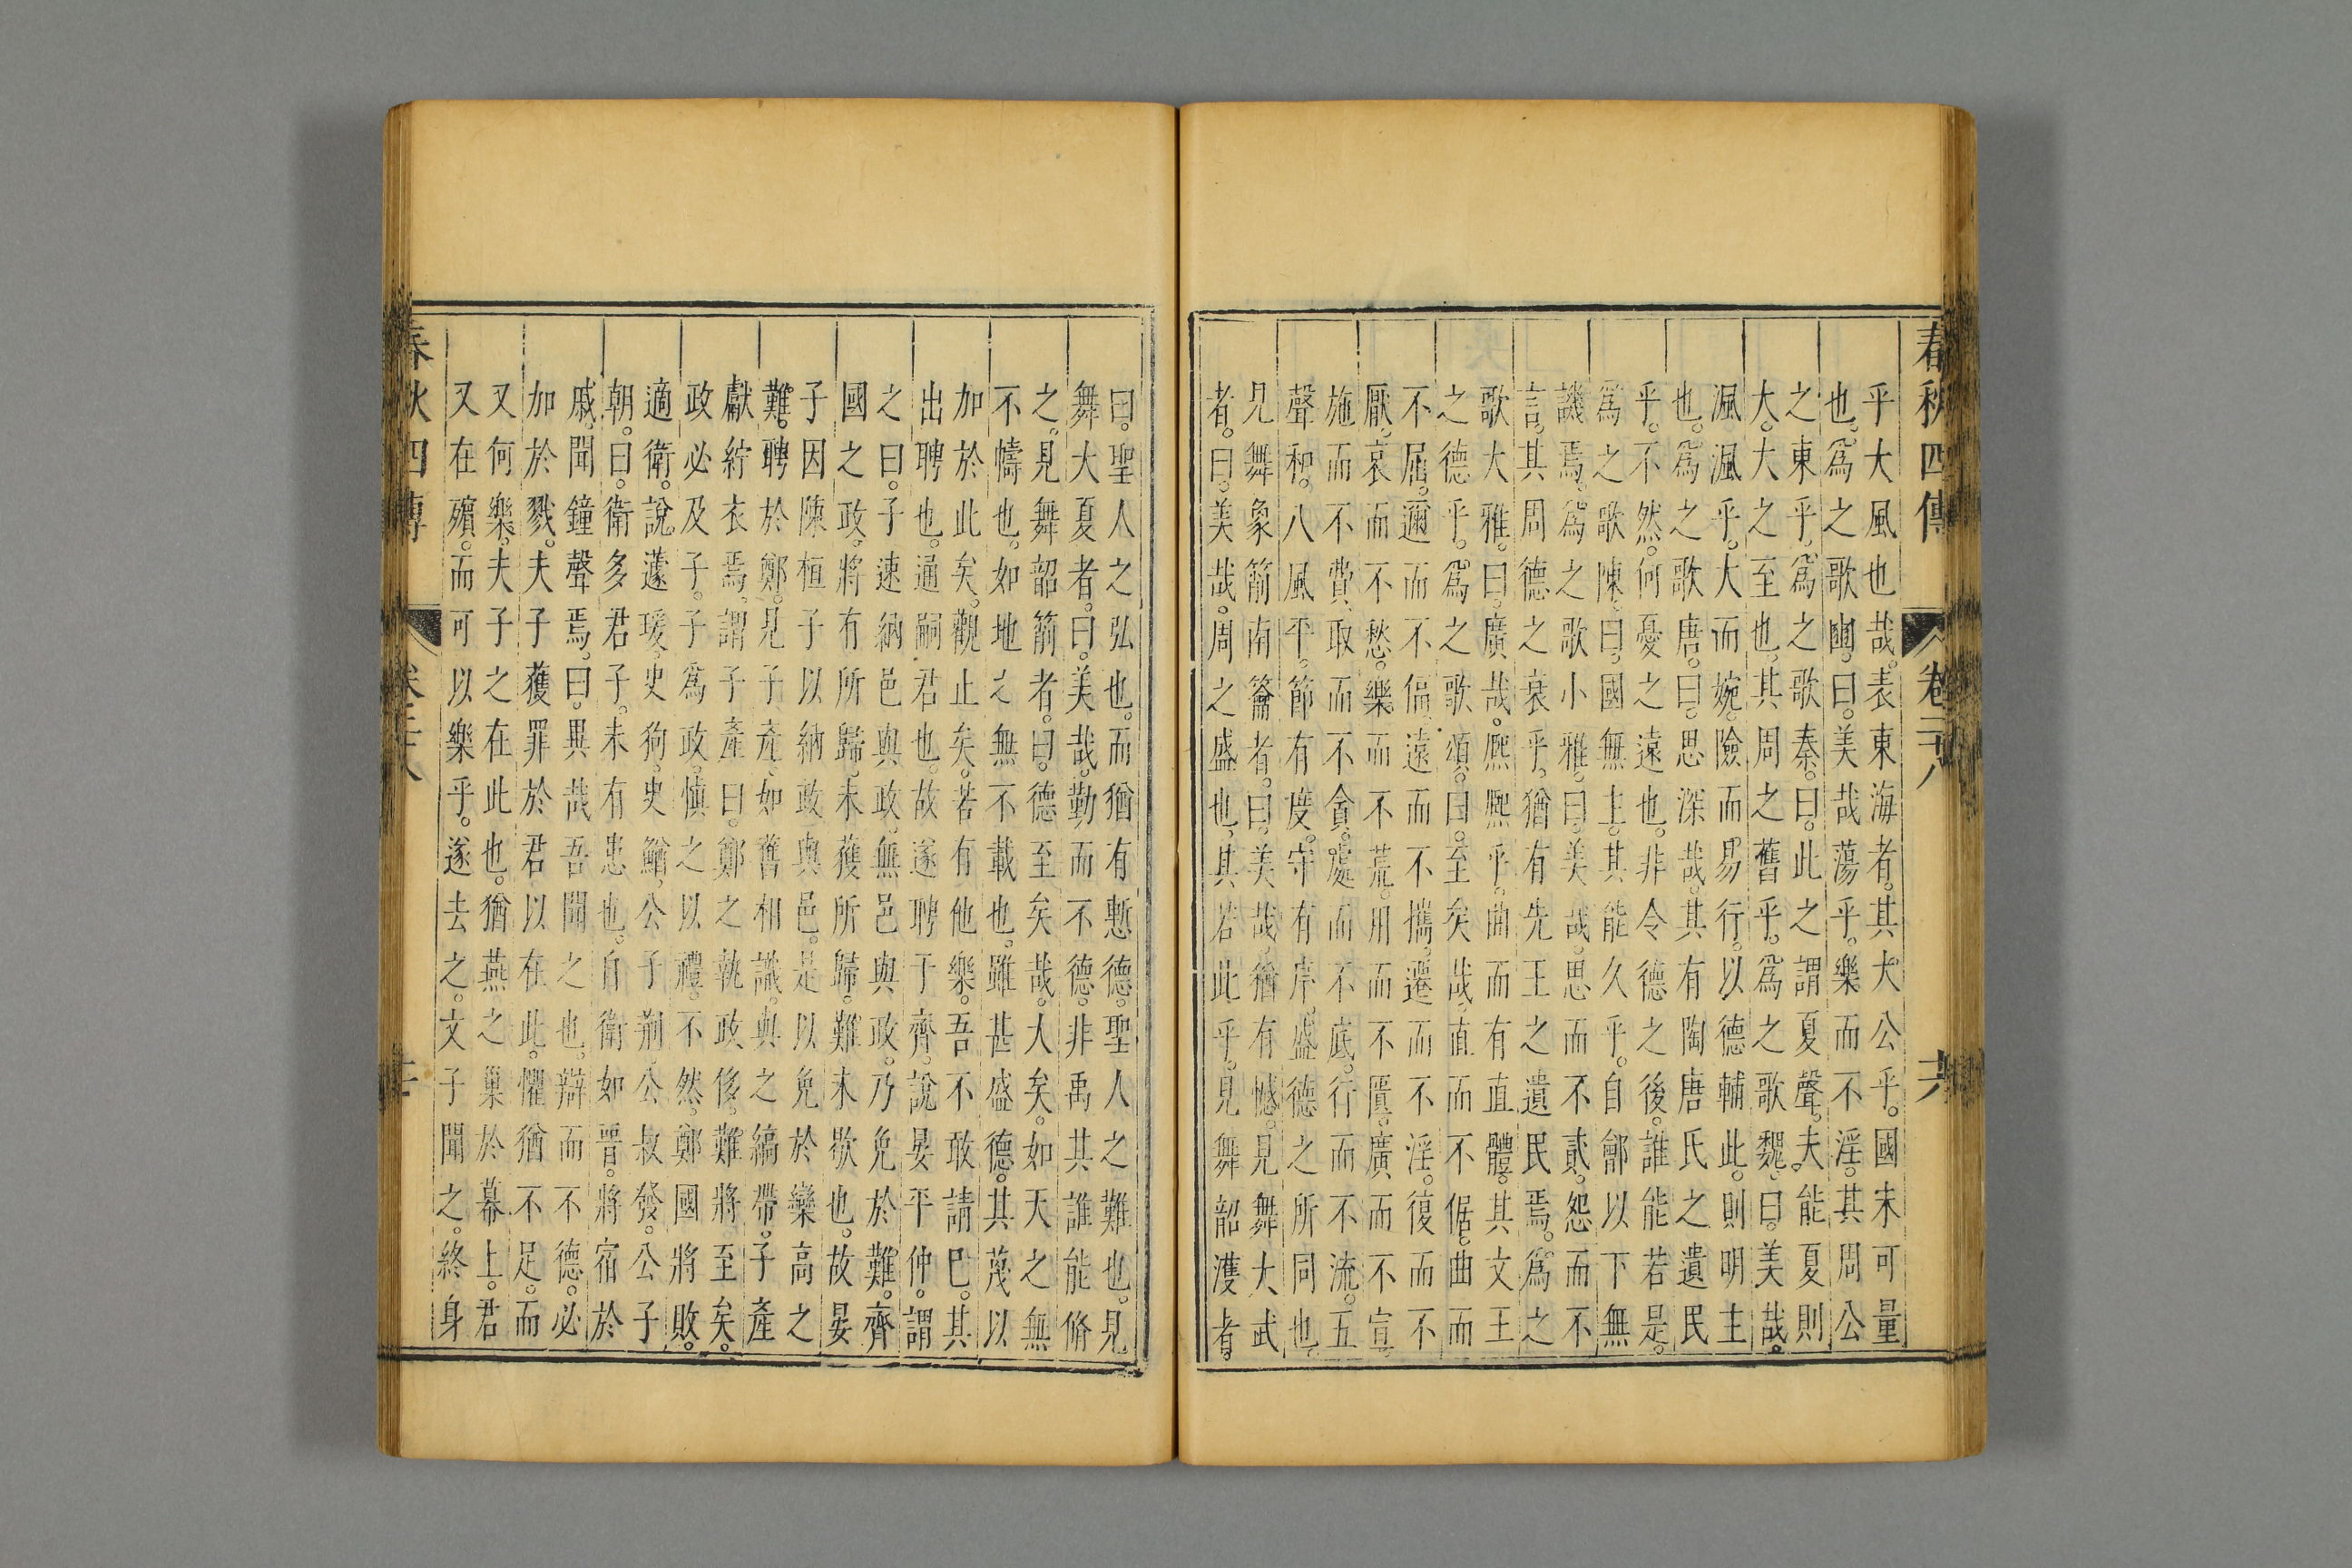 春秋四傳 卷二十八 十六
乎大風也哉。表東海者。其大公乎。國未可量
也。爲之歌豳。曰。美哉蕩乎。樂而不淫。其周公
之東乎。爲之歌秦。曰。此之謂夏聲。夫能夏則
大。大之至也。其周之舊乎。爲之歌魏。曰。美哉。
渢渢乎。大而婉。險而易行。以德輔此。則明主
也。爲之歌唐。曰。思深哉。其有陶唐氏之遺民
乎。不然。何憂之遠也。非令德之後。誰能若是。
爲之歌陳。曰。國無主。其能久乎。自鄶以下無
譏焉。爲之歌小雅。曰。美哉。思而不貳。怨而不
言。其周德之衰乎。猶有先王之遺民焉。爲之
歌大雅。曰。廣哉。熈熈乎。曲而有直體。其文王
之德乎。爲之歌頌。曰。至矣哉。直而不倨。曲而
不屈。邇而不偪。遠而不攜。遷而不淫。復而不
厭。哀而不愁。樂而不荒。用而不匱。廣而不宣。
施而不費。取而不貪。處而不底。行而不流。五
聲和。八風平。節有度。守有序。盛德之所同也。
見舞象箾南籥者。曰。美哉。猶有憾。見舞大武
者。曰。美哉。周之盛也。其若此乎。見舞韶濩者。
曰。聖人之弘也。而猶有慙德。聖人之難也。見
舞大夏者。曰。美哉。勤而不德。非禹其誰能脩
之。見舞韶箾者。曰。德至矣哉。大矣。如天之無
不幬也。如地之無不載也。雖甚盛德。其蔑以
加於此矣。觀止矣。若有他樂。吾不敢請已。其
出聘也。通嗣君也。故遂聘于齊。說晏平仲。謂
之曰。子速納邑與政。無邑與政。乃免於難。齊
國之政。將有所歸。未獲所歸。難未歇也。故晏
子因陳桓子以納政與邑。是以免於欒高之
難。聘於鄭。見子產。如舊相識。與之縞帶。子產
獻紵衣焉。謂子產曰。鄭之執政侈。難將至矣。
政必及子。子爲政。慎之以禮。不然。鄭國將敗。
適衛。說蘧瑗。史狗。史鰌。公子荊。公叔發。公子
朝。曰。衛多君子。未有患也。自衛如晉。將宿於
戚。聞鐘聲焉。曰。異哉。吾聞之也。辯而不德。必
加於戮。夫子獲罪於君以在此。懼猶不足。而
又何樂。夫子之在此也。猶燕之巢於幕上。君
又在殯。而可以樂乎。遂去之。文子聞之。終身
春秋四傳 卷二十八